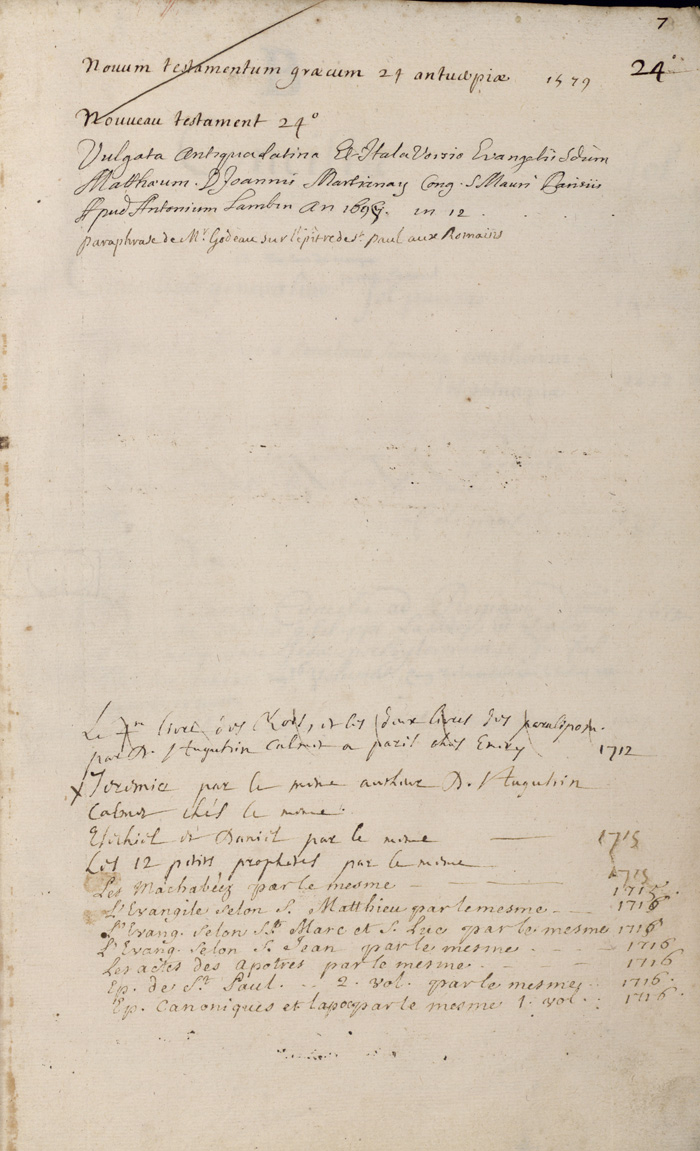 7
Novum testamentum græcum 24 antuerpiæ 1579 24°
Nouveau testament 24°
Vulgata Antiqua Latina Et Itala Versio Evangelii Sdum
Matthæum. D Joannis Martianay Cong. S Mauri Parisiis
Apud Antonium Lambin An 1695. in 12.
paraphrase de Mr. Godeau sur l'epitre de st. paul aux Romains
Le livre des Rois, et les deux livres des paralipom.
par D. Augustin Calmet a paris chés Emery 1712
x Jeremie par le meme autheur D. Augustin
Calmet chés le meme.
Esechiel et Daniel par le meme 1715
Les 12 petits prophetes par le meme 1715
Les Machabéez par le mesme 1715
L'Evangile selon S. Matthieu par le mesme 1716
L'Evang. selon St. Marc et S. Luc par le mesme 1716
L'Evang. selon S. Jean par le mesme 1716
Les actes des apotres par le mesme 1716
Ep. de St. Paul. 2. vol. par le mesme 1716
Ep. Canoniques et lapoc par le mesme 1. vol. 1716